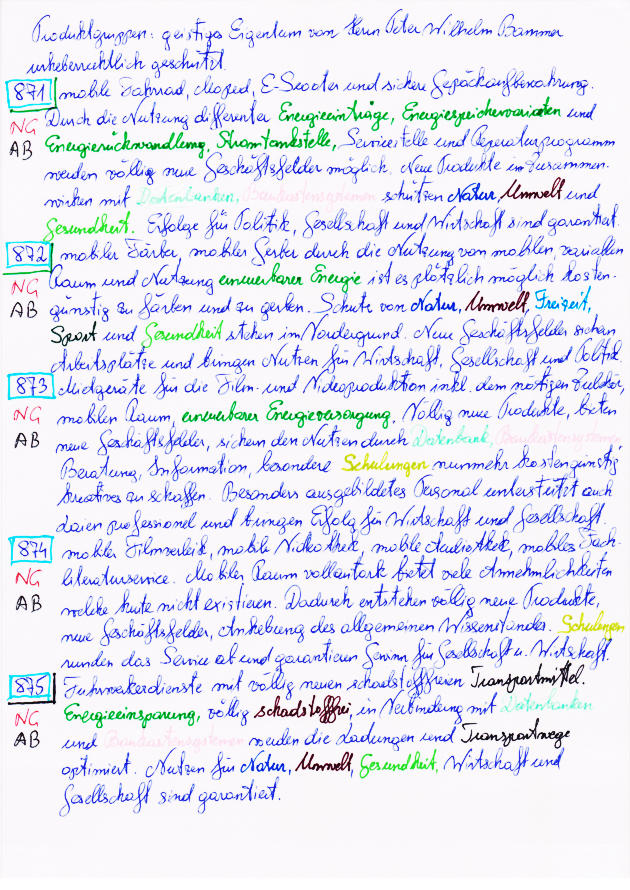 Produktgruppen: geistiges Eigentum von Herrn Peter Wilhelm Bammer
urheberrechtlich geschützt.
871 mobile Fahrrad, Moped, E-Scooter und sichere Gepäckaufbewahrung.
NG Durch die Nutzung differenter Energieeinträge, Energiespeichervarianten und
AB Energierückwandlung, Stromtankstelle, Servicestelle und Reparaturprogramm
werden völlig neue Geschäftsfelder möglich. Neue Produkte im Zusammen-
wirken mit Datenbanken, Baukastensystemen schützen Natur, Umwelt und
Gesundheit. Erfolge für Politik, Gesellschaft und Wirtschaft sind garantiert.
872 mobiler Färber, mobiler Gerber durch die Nutzung von mobilen, variablen
NG Raum und Nutzung erneuerbarer Energie ist es plötzlich möglich kosten-
AB günstig zu färben und zu gerben. Schutz von Natur, Umwelt, Freizeit,
Sport und Gesundheit stehen im Vordergrund. Neue Geschäftsfelder sichern
Arbeitsplätze und bringen Nutzen für Wirtschaft, Gesellschaft und Politik
873 Mietgeräte für die Film- und Videoproduktion inkl. dem nötigen Zubehör,
NG mobilen Raum, erneuerbarer Energieversorgung. Völlig neue Produkte, bieten
AB neue Geschäftsfelder, sichern den Nutzen durch Datenbank, Baukastensystemen
Beratung, Information, besondere Schulungen nunmehr kostengünstig
kreatives zu schaffen. Besonders ausgebildetes Personal unterstützt auch
Laien professionell und bringen Erfolg für Wirtschaft und Gesellschaft.
874 mobiler Filmverleih, mobile Videothek, mobile Audiothek, mobiles Fach-
NG literaturservice. Mobiler Raum vollautark bietet viele Annehmlichkeiten
AB welche heute nicht existieren. Dadurch entstehen völlig neue Produkte,
neue Geschäftsfelder, Anhebung des allgemeinen Wissenstandes. Schulungen
runden das Service ab und garantieren Gewinn für Gesellschaft u. Wirtschaft.
875 Fuhrwerkerdienste mit völlig neuen schadstofffreien Transportmittel.
NG Energieeinsparung, völlig schadstofffrei, in Verbindung mit Datenbanken
AB und Baukastensystemen werden die Ladungen und Transportwege
optimiert. Nutzen für Natur, Umwelt, Gesundheit, Wirtschaft und
Gesellschaft sind garantiert.